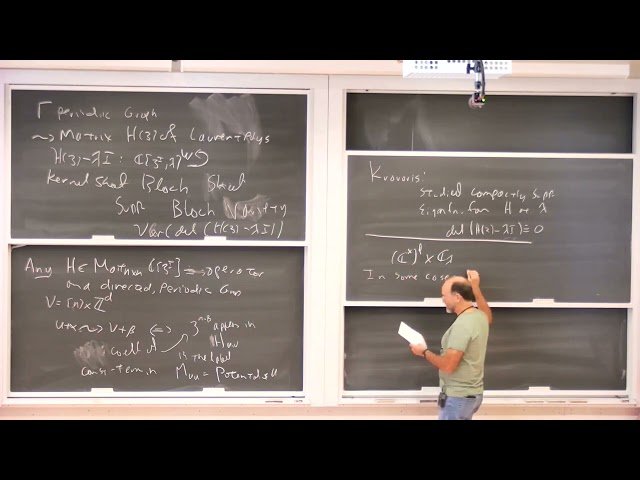 Γ periodic Graph
⤳ Matrix H(z) of Laurent Polys
H(z)-λI : ℂ[z^±,λ]
Kernel Sheaf Bloch Sheaf
Supp Bloch Variety
Var(det(H(z)-λI))
Any H∈Mat ℂ[z^±] operator
on a directed, Periodic Graph
V = [n] × ℤ^d
u+α ⤳ v+β ⇔ z^{α-β} appears in
H_{uv}
coeff is the label
const-term in M_{uu} = Potential
Studied compactly supp.
Eigenfn. for H at λ
det(H(z)-λI) ≡ 0
(ℂ^×)^d × ℂ_λ
In some case